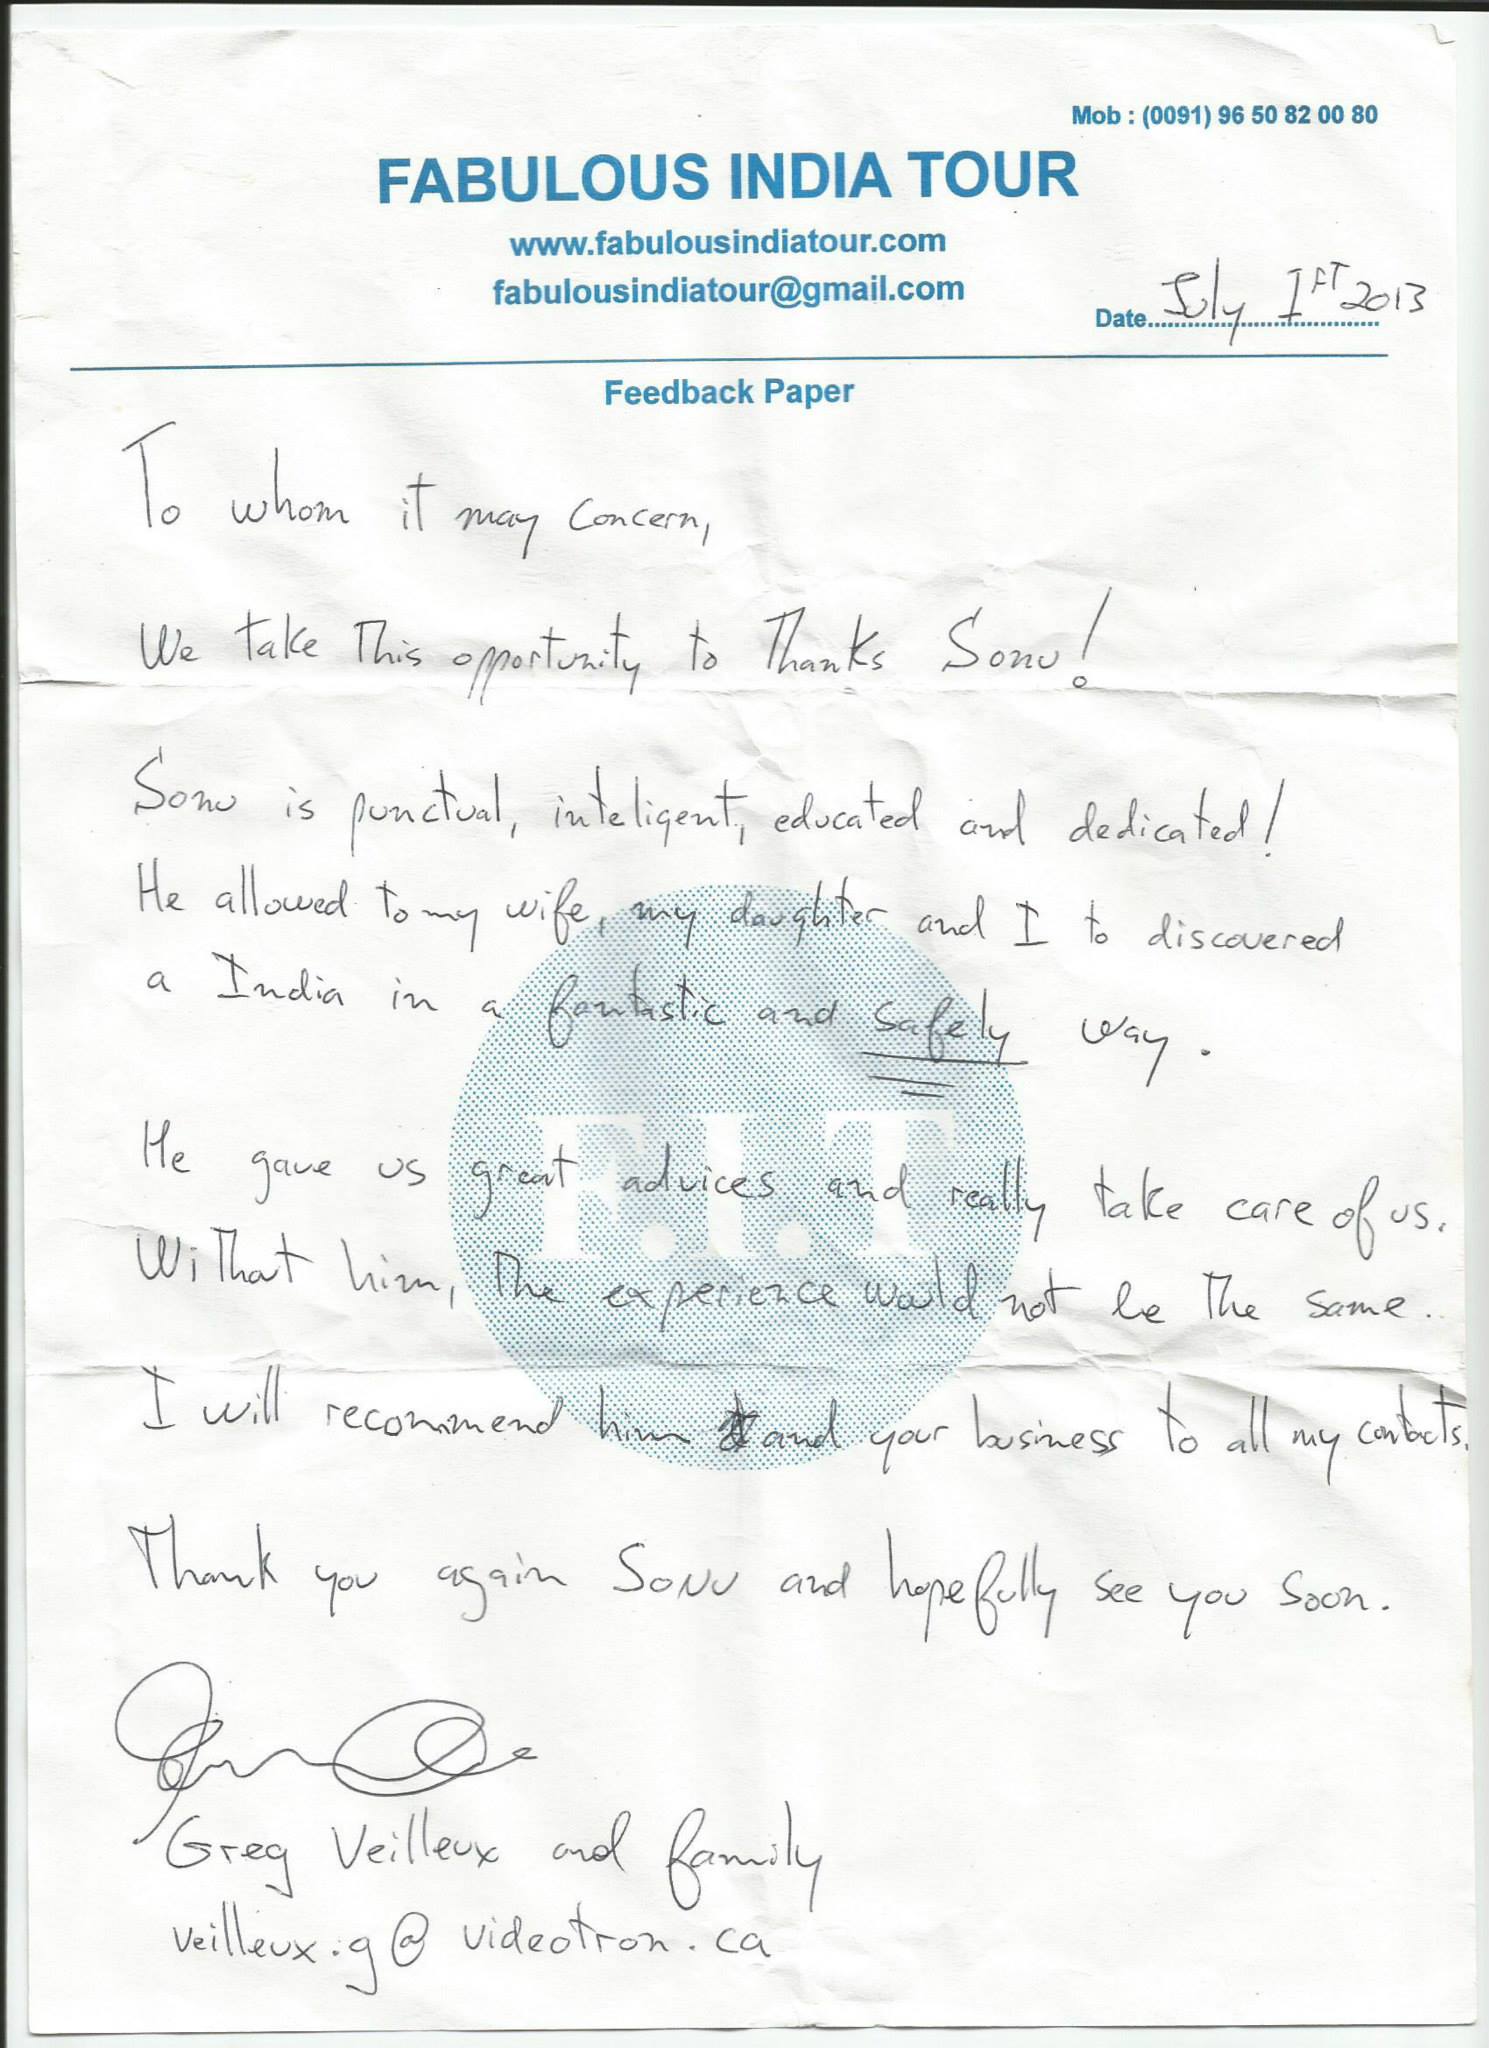 Mob : (0091) 96 50 82 00 80
FABULOUS INDIA TOUR
www.fabulousindiatour.com
fabulousindiatour@gmail.com
Date July 1st 2013
Feedback Paper
To whom it may concern,
We take This opportunity to Thanks Sonu!
Sonu is punctual, inteligent, educated and dedicated!
He allowed to my wife, my daughter and I to discovered
a India in a fantastic and safely way.
He gave us great advices and really take care of us.
Without him, The experience would not be The same..
I will recommend him and your business to all my contacts.
Thank you again Sonu and hopefully see you soon.
Greg Veilleux and family
veilleux.g@videotron.ca
F.I.T